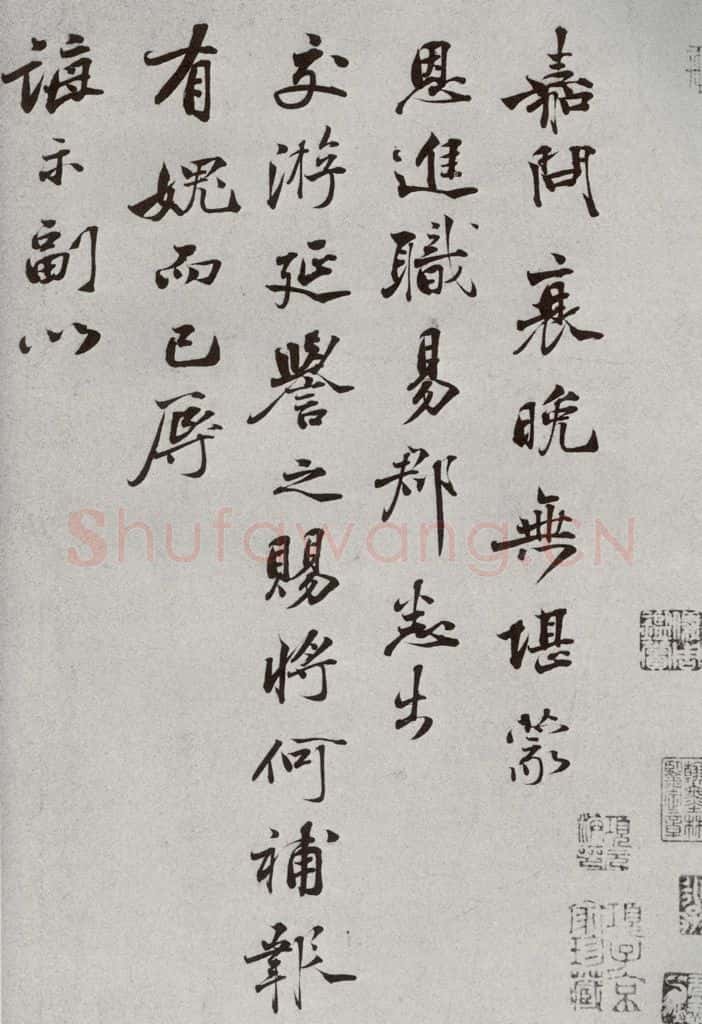 嘉問衰晚無堪蒙
恩進職易郡悉出
交游延譽之賜將何補報
有媿而已辱
誨示副以
Shufawang.CN
項子京
家珍藏